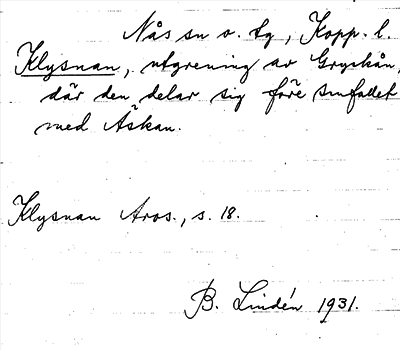 Nås sn o. tg, Kopp. l.
Klysnan, utgrening av Gryckån,
där den delar sig före smfallet
med Äskan.
Klysnan Aros., s. 18.
B. Lindén 1931.